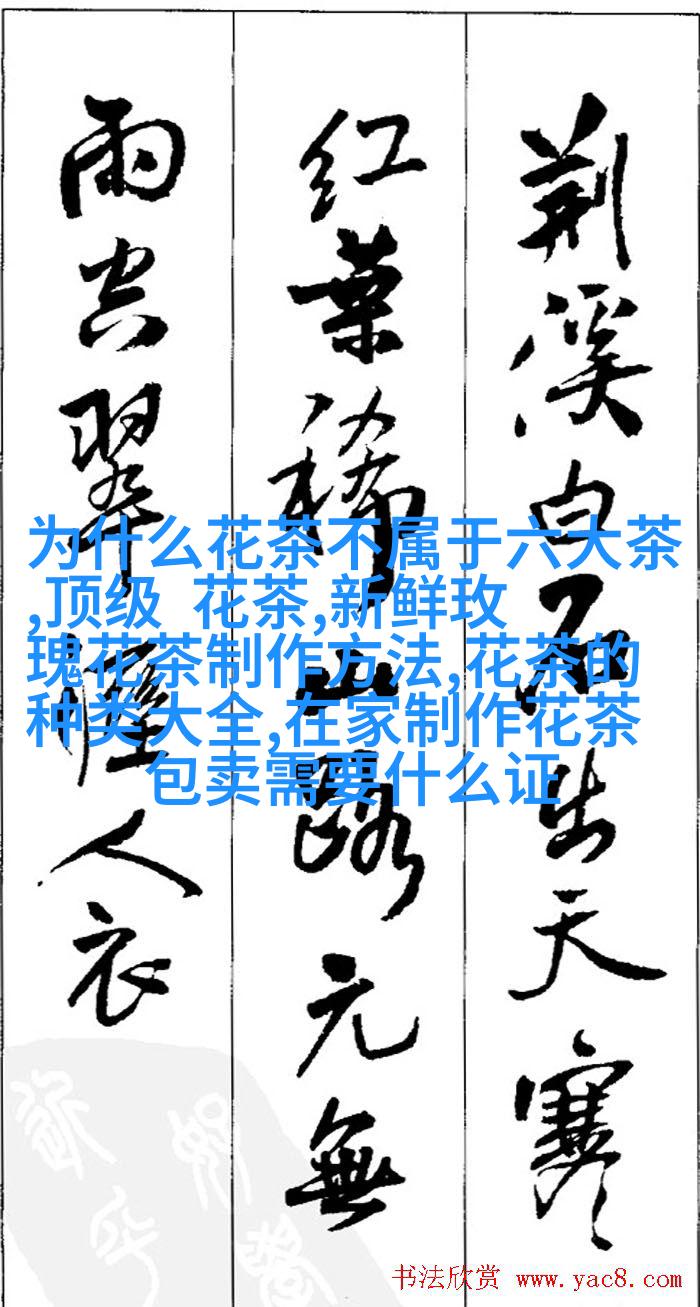 荆溪白石出天寒
红葉稀山路元無
雨空翠濕人衣
为什么花茶不属于六大茶
,顶级 花茶,新鲜玫
瑰花茶制作方法,花茶的
种类大全,在家制作花茶
包卖需要什么证
书法欣赏 www.yac8.com